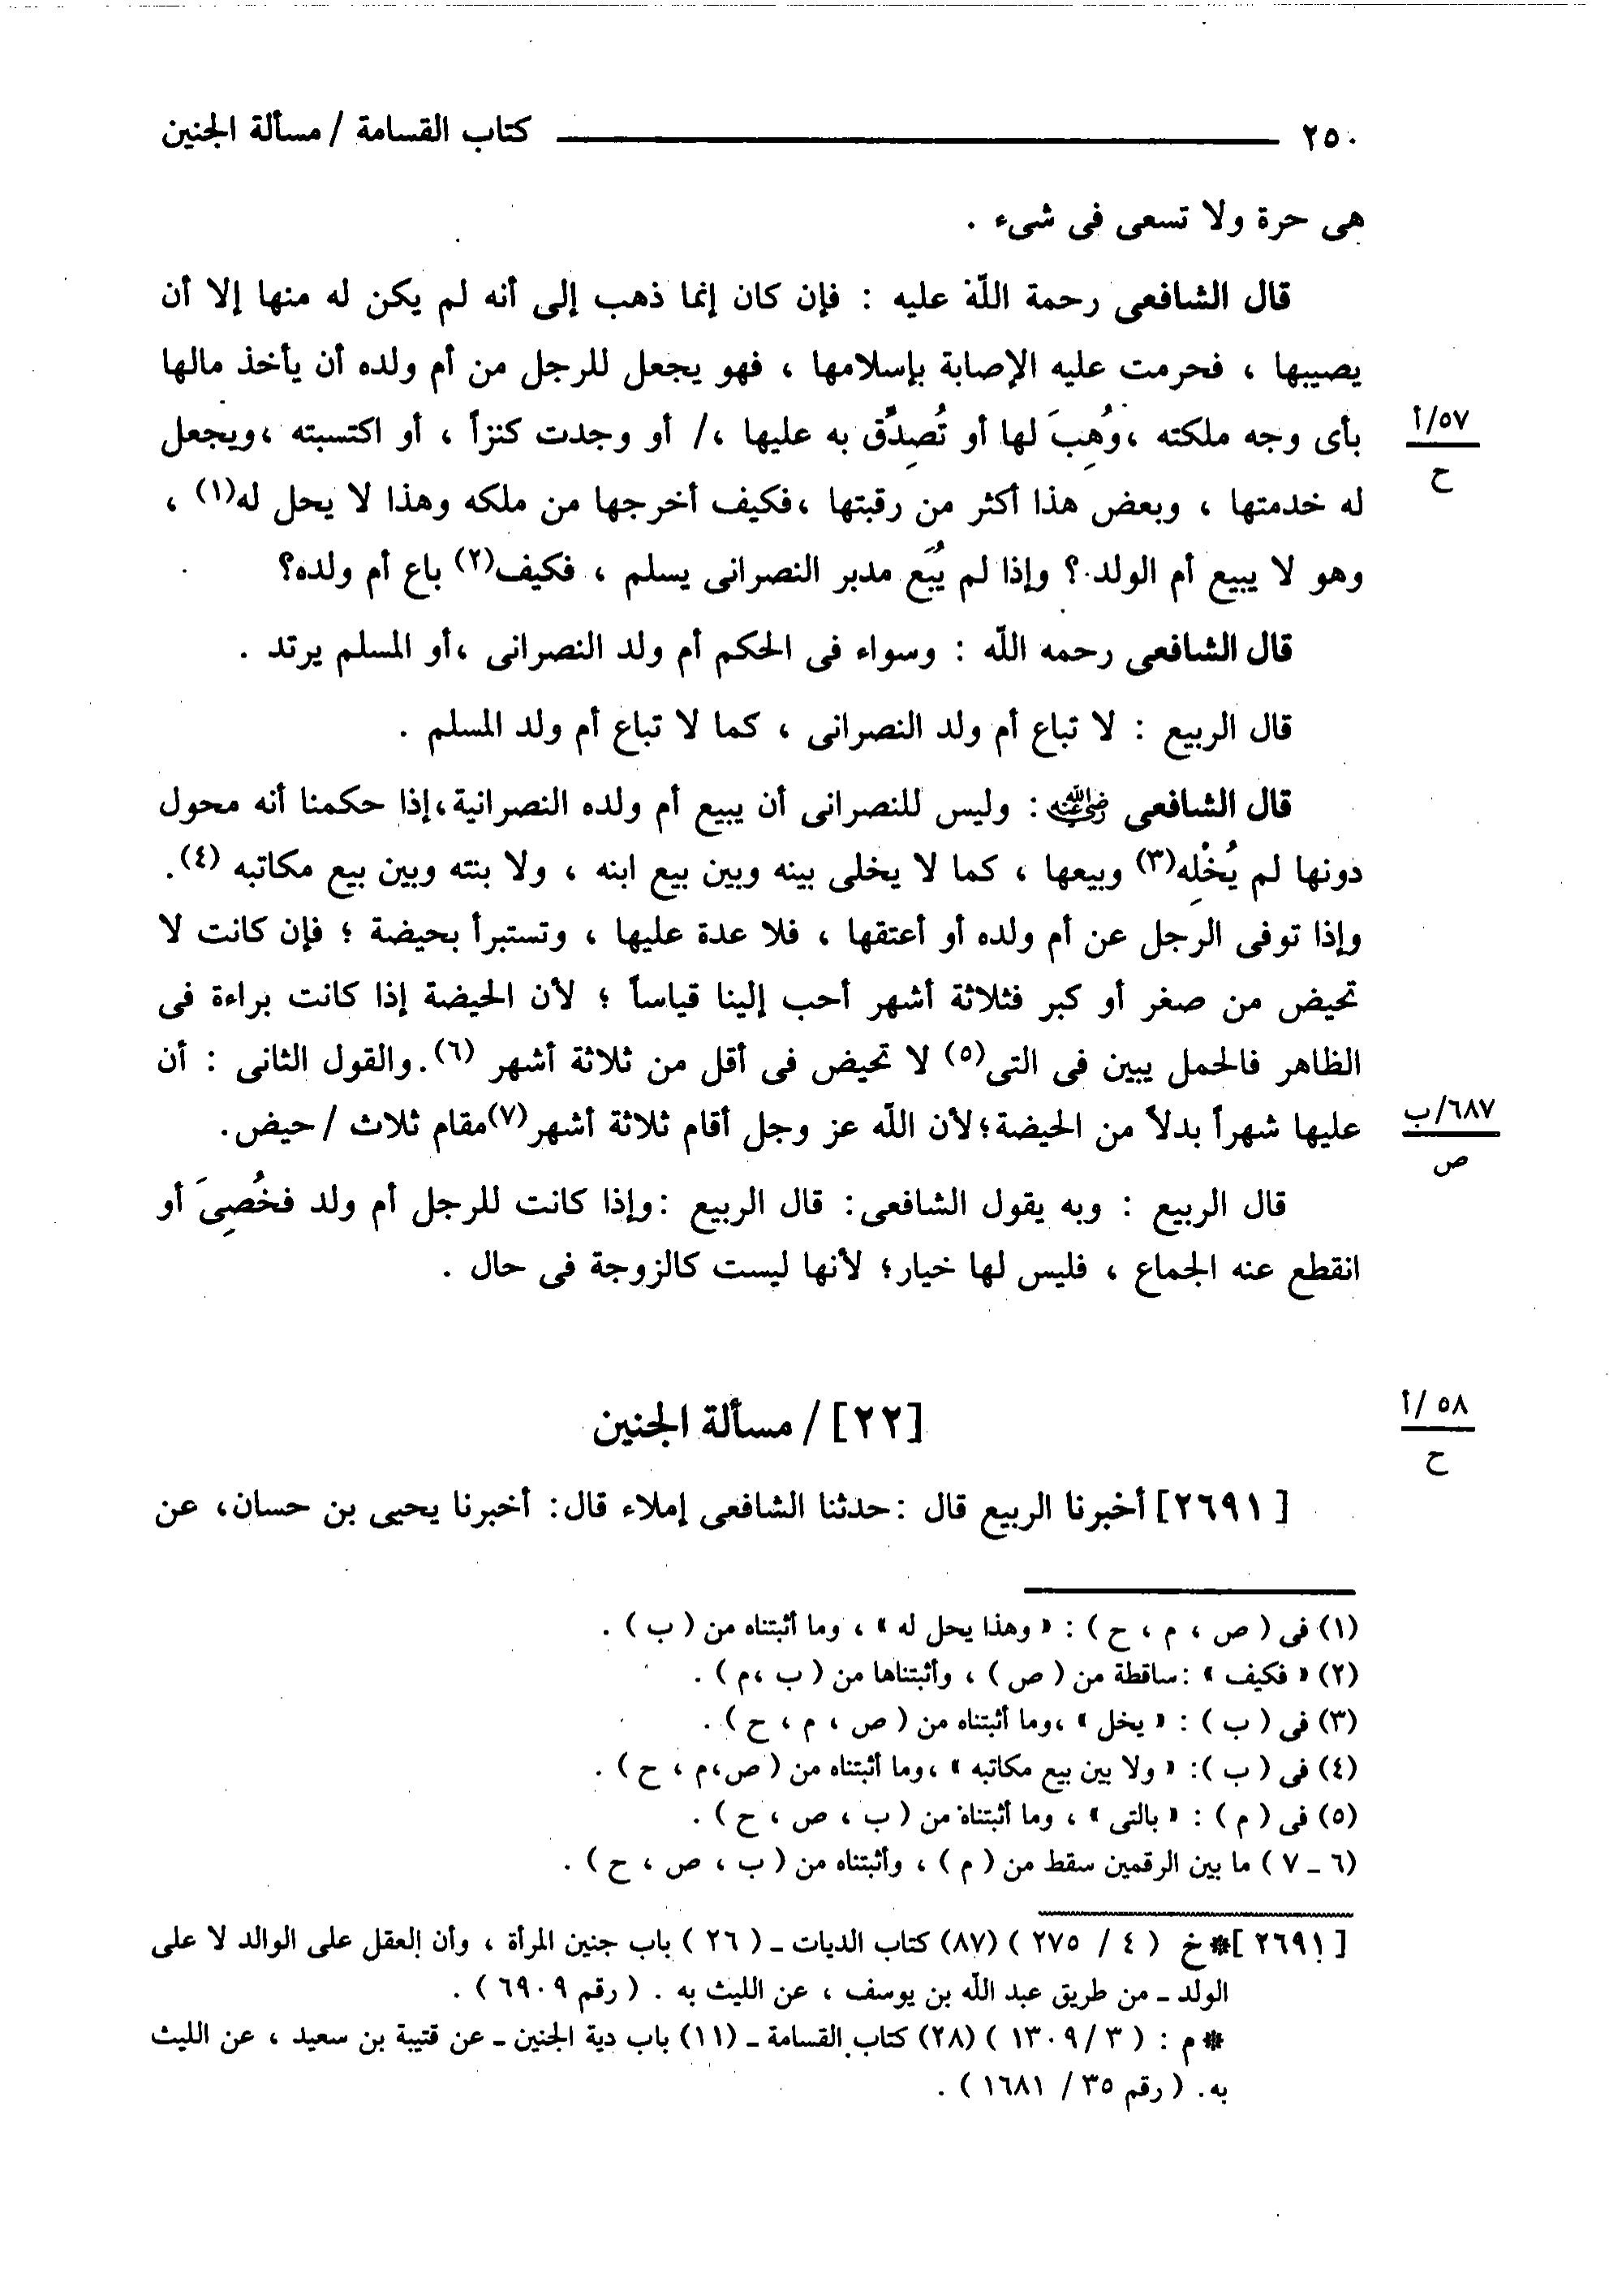 ٢٥٠ كتاب القسامة / مسألة الجنين
هى حرة ولا تسعى فى شىء .
قال الشافعى رحمة اللّه عليه : فإن كان إنما ذهب إلى أنه لم يكن له منها إلا أن
يصيبها ، فحرمت عليه الإصابة بإسلامها ، فهو يجعل للرجل من أم ولده أن يأخذ مالها
بأى وجه ملكته ،وُهِبَ لها أو تُصدِّق به عليها ،/ أو وجدت كنزاً ، أو اكتسبته ،ويجعل
٥٧/أ
ح
له خدمتها ، وبعض هذا أكثر من رقبتها ،فكيف أخرجها من ملكه وهذا لا يحل له(١) ،
وهو لا يبيع أم الولد ؟ وإذا لم يُبَع مدبر النصرانى يسلم ، فكيف(٢) باع أم ولده؟
قال الشافعى رحمه اللّه : وسواء فى الحكم أم ولد النصرانى ،أو المسلم يرتد .
قال الربيع : لا تباع أم ولد النصرانى ، كما لا تباع أم ولد المسلم .
قال الشافعى رضي الله عنه : وليس للنصرانى أن يبيع أم ولده النصرانية،إذا حكمنا أنه محول
دونها لم يُخْلِه(٣) وبيعها ، كما لا يخلى بينه وبين بيع ابنه ، ولا بنته وبين بيع مكاتبه (٤).
وإذا توفى الرجل عن أم ولده أو أعتقها ، فلا عدة عليها ، وتستبرأ بحيضة ؛ فإن كانت لا
تحيض من صغر أو كبر فثلاثة أشهر أحب إلينا قياساً ؛ لأن الحيضة إذا كانت براءة فى
الظاهر فالحمل يبين فى التى(٥) لا تحيض فى أقل من ثلاثة أشهر (٦).والقول الثانى : أن
عليها شهراً بدلاً من الحيضة؛لأن اللّه عز وجل أقام ثلاثة أشهر(٧)مقام ثلاث / حيض.
٦٨٧/ب
ص
قال الربيع : وبه يقول الشافعى: قال الربيع :وإذا كانت للرجل أم ولد فخُصِىَ أو
انقطع عنه الجماع ، فليس لها خيار؛ لأنها ليست كالزوجة فى حال .
[٢٢] / مسألة الجنين
٥٨ /أ
ح
[٢٦٩١] أخبرنا الربيع قال :حدثنا الشافعى إملاء قال: أخبرنا يحيى بن حسان، عن
(١) فى ( ص ، م ، ح ) : « وهذا يحل له » ، وما أثبتناه من ( ب ) .
(٢) « فكيف » :ساقطة من ( ص ) ، وأثبتناها من ( ب ،م ) .
(٣) فى ( ب ) : « يخل » ،وما أثبتناه من ( ص ، م ، ح ) .
(٤) فى ( ب ): « ولا بين بيع مكاتبه » ،وما أثبتناه من ( ص،م ، ح ) .
(٥) فى ( م ) : « بالتى » ، وما أثبتناه من ( ب ، ص ، ح ) .
(٦ ـ ٧ ) ما بين الرقمين سقط من ( م ) ، وأثبتناه من ( ب ، ص ، ح ) .
[٢٦٩١]* خ ( ٤ / ٢٧٥ ) (٨٧) كتاب الديات ـ ( ٢٦ ) باب جنين المرأة ، وأن العقل على الوالد لا على
الولد ـ من طريق عبد اللّه بن يوسف ، عن الليث به . ( رقم ٦٩٠٩ ) .
* م : ( ٣ /١٣٠٩ ) (٢٨) كتاب القسامة ـ (١١) باب دية الجنين ـ عن قتيبة بن سعيد ، عن الليث
به. ( رقم ٣٥ / ١٦٨١ ) .